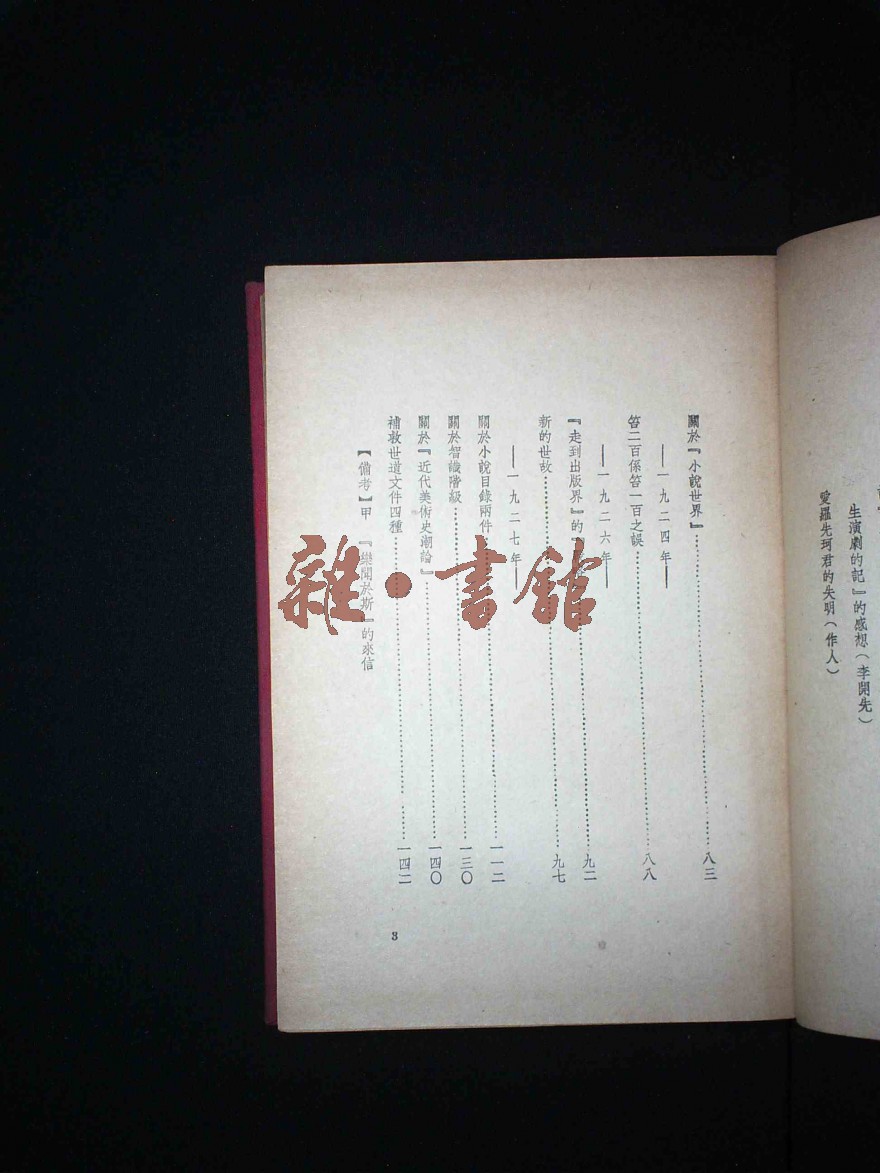 生演劇的記』的感想（李開先）
愛羅先珂君的失明（作人）
關於『小說世界』……八三
——一九二四年——
答二百係答一百之誤……八八
——一九二六年——
『走到出版界』的『……九二
新的世故……九七
——一九二七年——
關於小說目錄兩件……一一二
關於智識階級……一三〇
關於『近代美術史潮論』……一四〇
補救世道文件四種……一四二
【備考】甲　『樂聞於斯』的來信
3
雜·書館